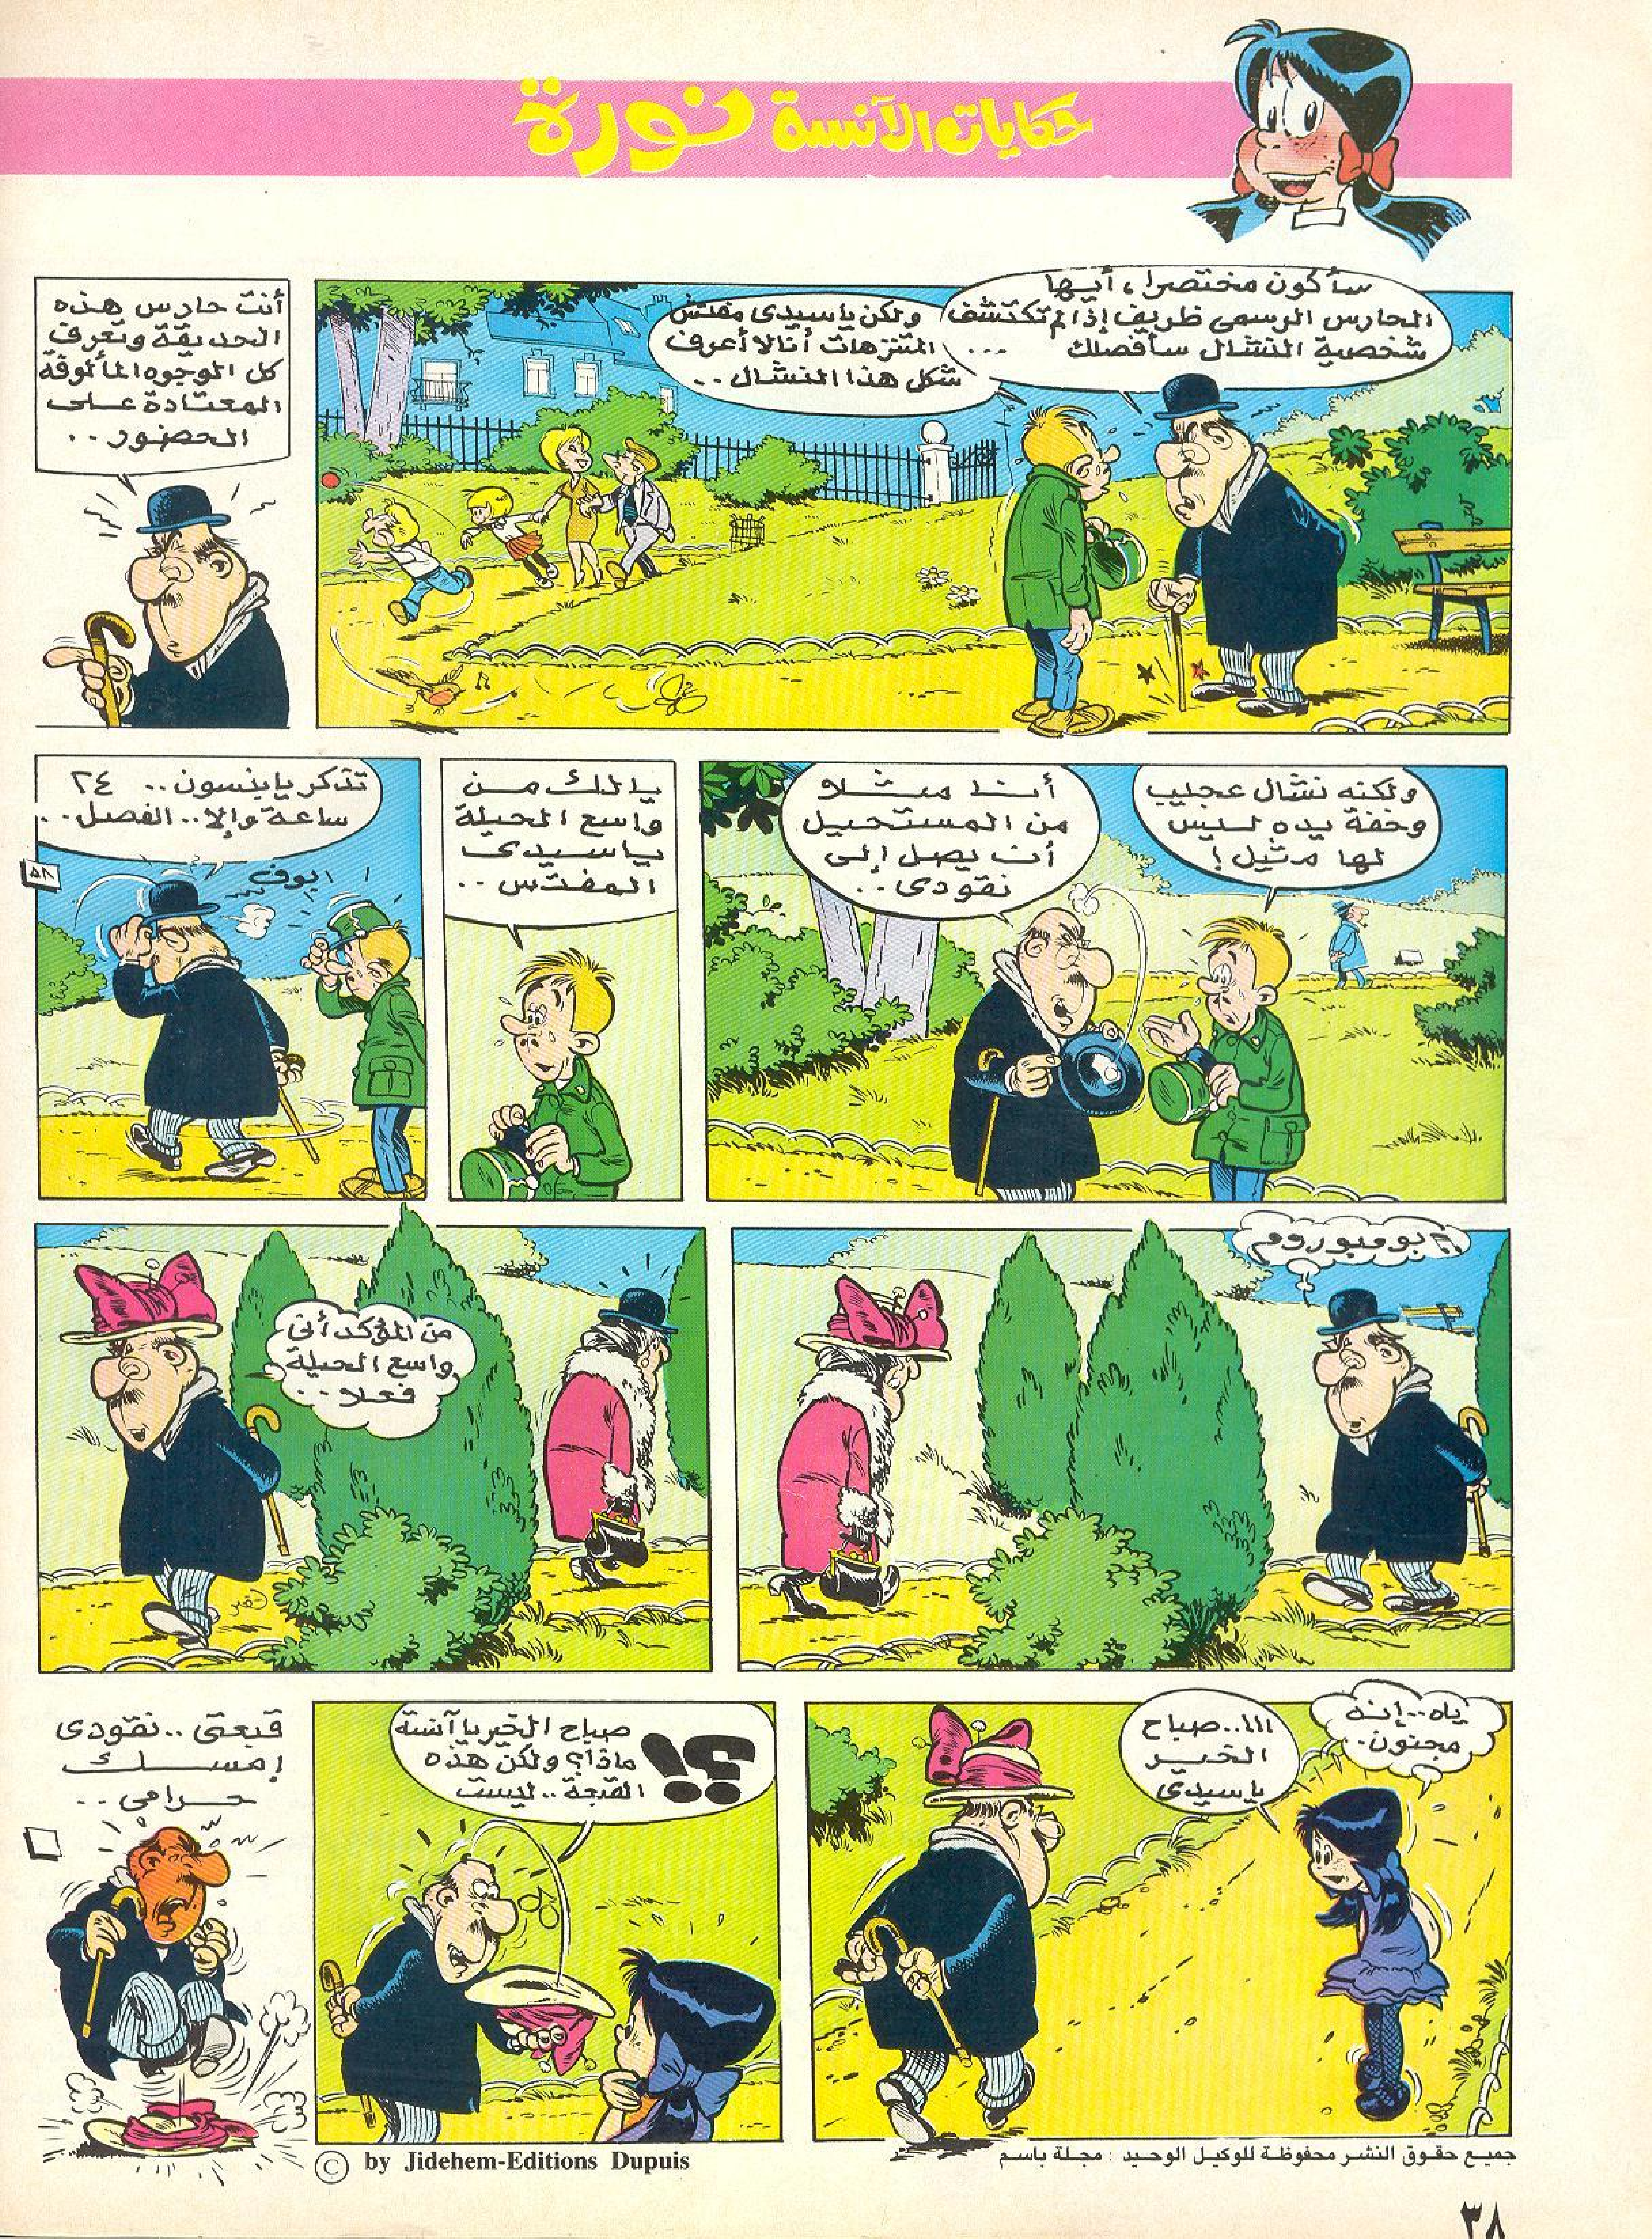 حكايات الآنسة نورة
سأكون مختصرا، أيها
الحارس الرسمي ظريف إذا لم تكتشف
شخصية النشال سأفصلك
...
ولكن ياسيدى مفتش
المتنزهات أنا لا أعرف
شكل هذا النشال..
أنت حارس هذه
الحديقة وتعرف
كل الوجوه المألوفة
المعتادة على
الحضور..
ولكنه نشال عجيب
وخفة يده ليس
لها مثيل!
أنا مثلا
من المستحيل
أن يصل إلى
نقودى..
يالك من
واسع الحيلة
ياسيدى
المفتش..
تذكر يا بنسون.. ٢٤
ساعة وإلا.. الفصل..
بوف
٥٨
بومبوروم
من المؤكد أنى
واسع الحيلة
فعلا..
ياه..إنه
مجنون.
ااا..صباح
الخير
ياسيدى
صباح الخير يا آنسة
ماذا؟ ولكن هذه
القبعة.. ليست
؟!
قبعتى..نقودى
إمسك
حرامى..
© by Jidehem-Editions Dupuis
جميع حقوق النشر محفوظة للوكيل الوحيد : مجلة باسم
٣٨